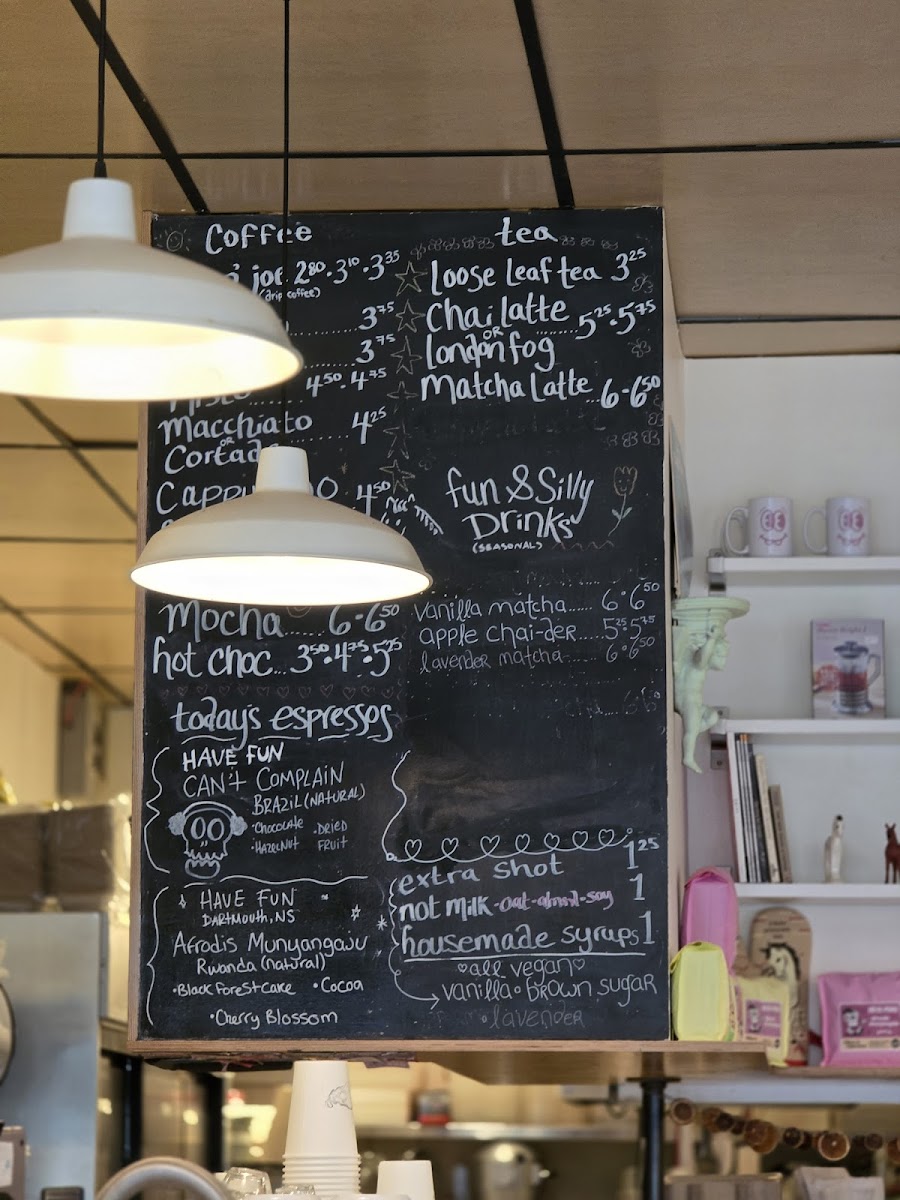 Coffee
joe 2.80 · 3.10 · 3.35
(drip coffee)
3.75
3.75
4.50 · 4.75
Macchiato
OR
Cortado
4.25
4.50
Mocha...... 6 · 6.50
hot choc... 3.50 · 4.75 · 5.25
today's espressos
HAVE FUN
CAN'T COMPLAIN
BRAZIL (NATURAL)
· CHOCOLATE · DRIED
· HAZELNUT FRUIT
HAVE FUN
DARTMOUTH, NS
Afrodis Munyangaju
Rwanda (natural)
· Black Forest Cake · Cocoa
· Cherry Blossom
tea
loose leaf tea 3.25
Chai latte
OR
london fog
5.25 · 5.75
Matcha Latte .. 6 - 6.50
fun & Silly
Drinks
(SEASONAL)
vanilla matcha...... 6 · 6.50
apple chai-der..... 5.25 · 5.75
lavender matcha...... 6 · 6.50
extra shot 1.25
not milk - oat - almond - soy 1
housemade syrups 1
all vegan
vanilla · brown sugar
· lavender